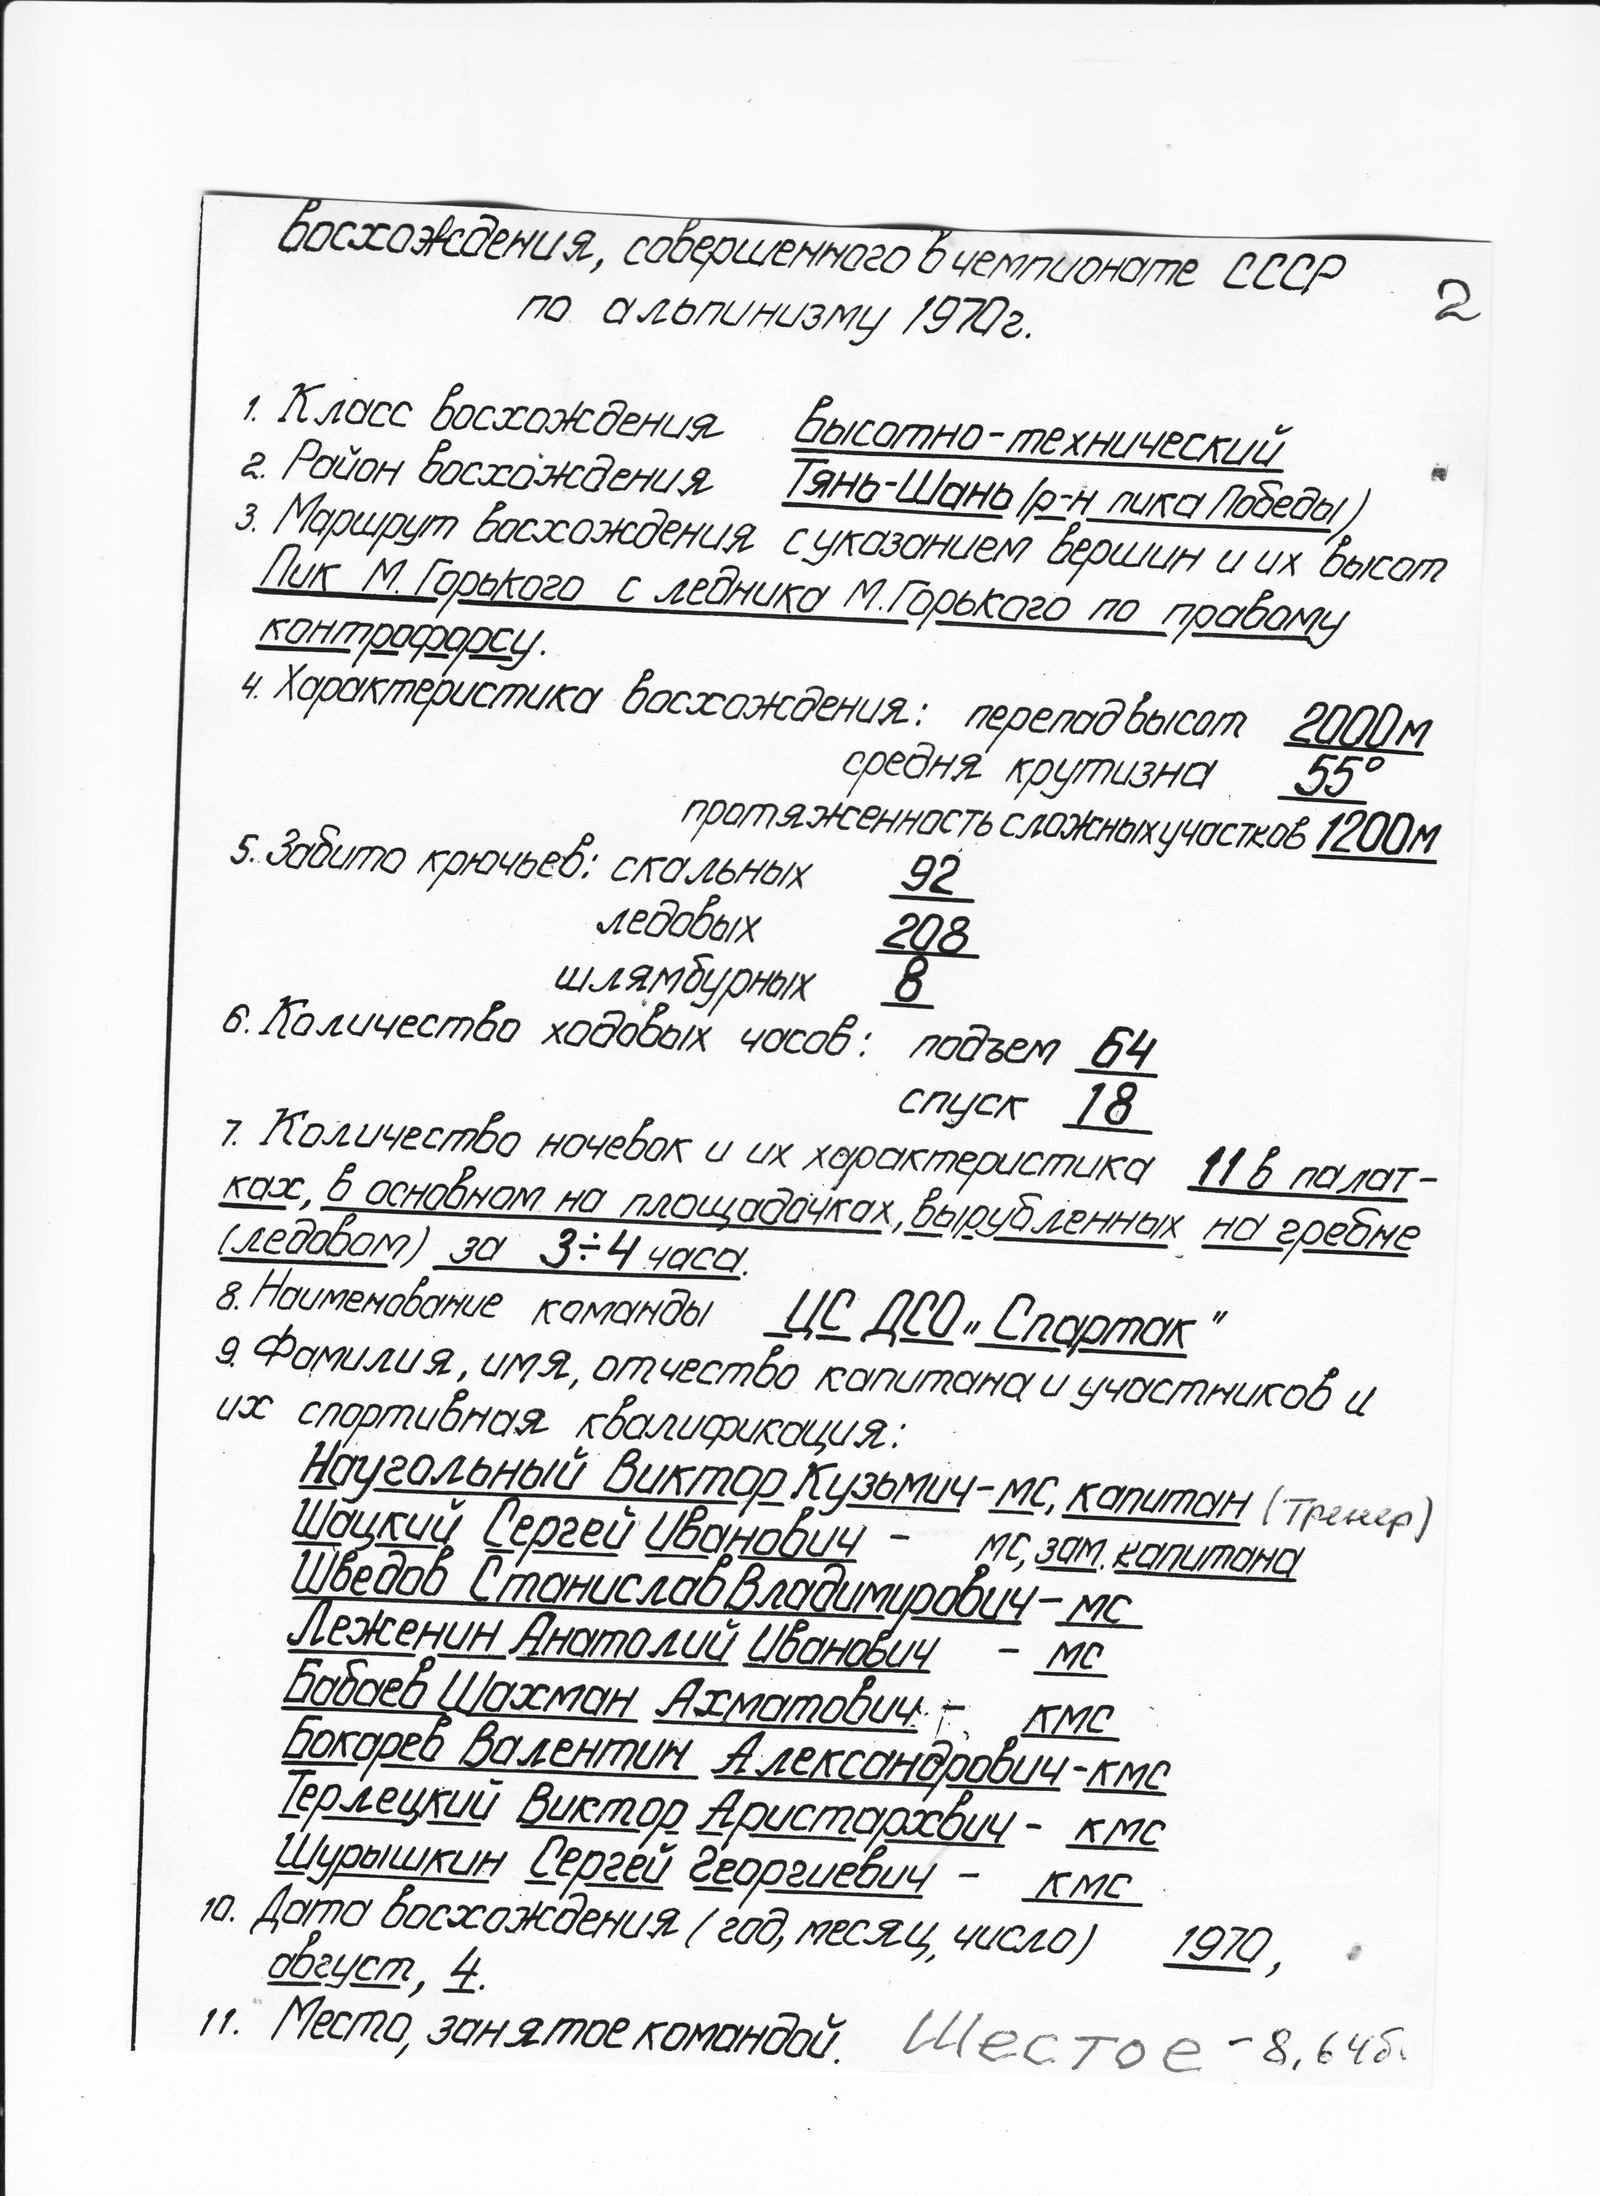 восхождения, совершенного в чемпионате СССР
по альпинизму 1970г.
2
1. Класс восхождения высотно-технический
2. Район восхождения Тянь-Шань (р-н пика Победы)
3. Маршрут восхождения с указанием вершин и их высот
Пик М. Горького с ледника М. Горького по правому
контрофорсу.
4. Характеристика восхождения: перепад высот 2000м
средня крутизна 55°
протяженность сложных участков 1200м
5. Забито крючьев: скальных 92
ледовых 208
шлямбурных 8
6. Количество ходовых часов: подъем 64
спуск 18
7. Количество ночевок и их характеристика 11 в палат-
ках, в основном на площадочках, вырубленных на гребне
(ледовом) за 3÷4 часа.
8. Наименование команды ЦС ДСО „Спартак"
9. Фамилия, имя, отчество капитана и участников и
их спортивная квалификация:
Наугольный Виктор Кузьмич-мс, капитан (тренер)
Шацкий Сергей Иванович - мс, зам. капитана
Шведов Станислав Владимирович - мс
Леженин Анатолий Иванович - мс
Бабаев Шахман Ахматович - кмс
Бокарев Валентин Александрович - кмс
Терлецкий Виктор Аристархвич - кмс
Шурышкин Сергей Георгиевич - кмс
10. Дата восхождения (год, месяц, число) 1970,
август, 4.
11. Место, занятое командой. Шестое - 8,64б.